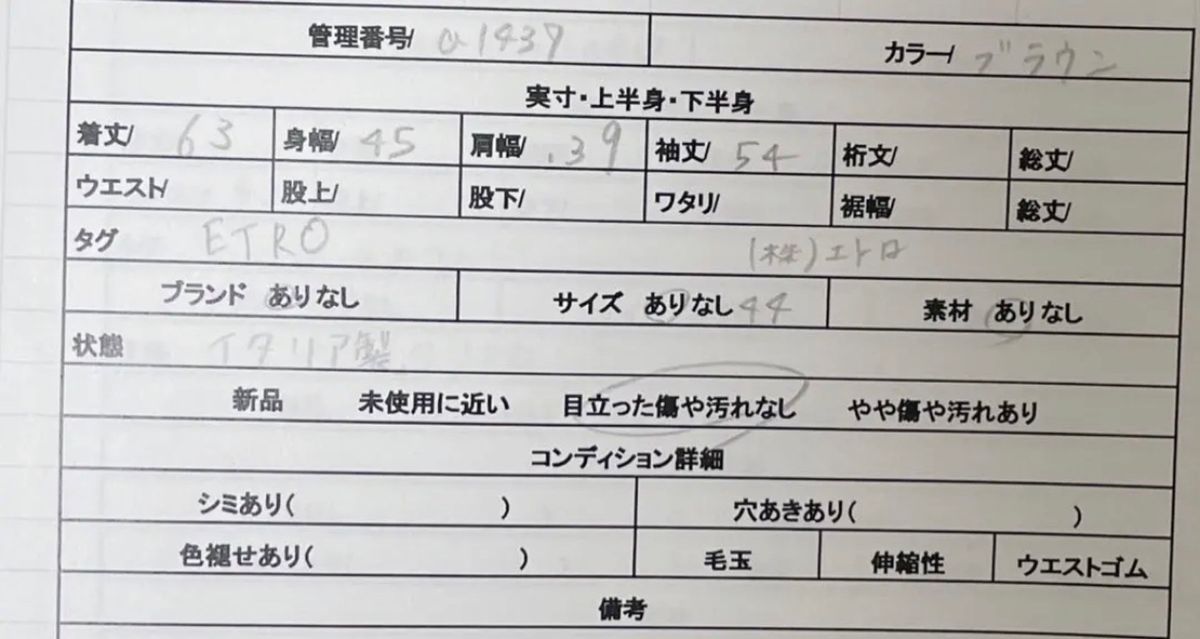 管理番号/ a1437 カラー/ ブラウン
実寸・上半身・下半身
着丈/ 63 身幅/ 45 肩幅/ .39 袖丈/ 54 裄文/ 総丈/
ウエスト/ 股上/ 股下/ ワタリ/ 裾幅/ 総丈/
タグ ETRO (株)エトロ
ブランド ありなし サイズ ありなし 44 素材 ありなし
状態 イタリア製
新品 未使用に近い 目立った傷や汚れなし やや傷や汚れあり
コンディション詳細
シミあり( ) 穴あきあり( )
色褪せあり( ) 毛玉 伸縮性 ウエストゴム
備考